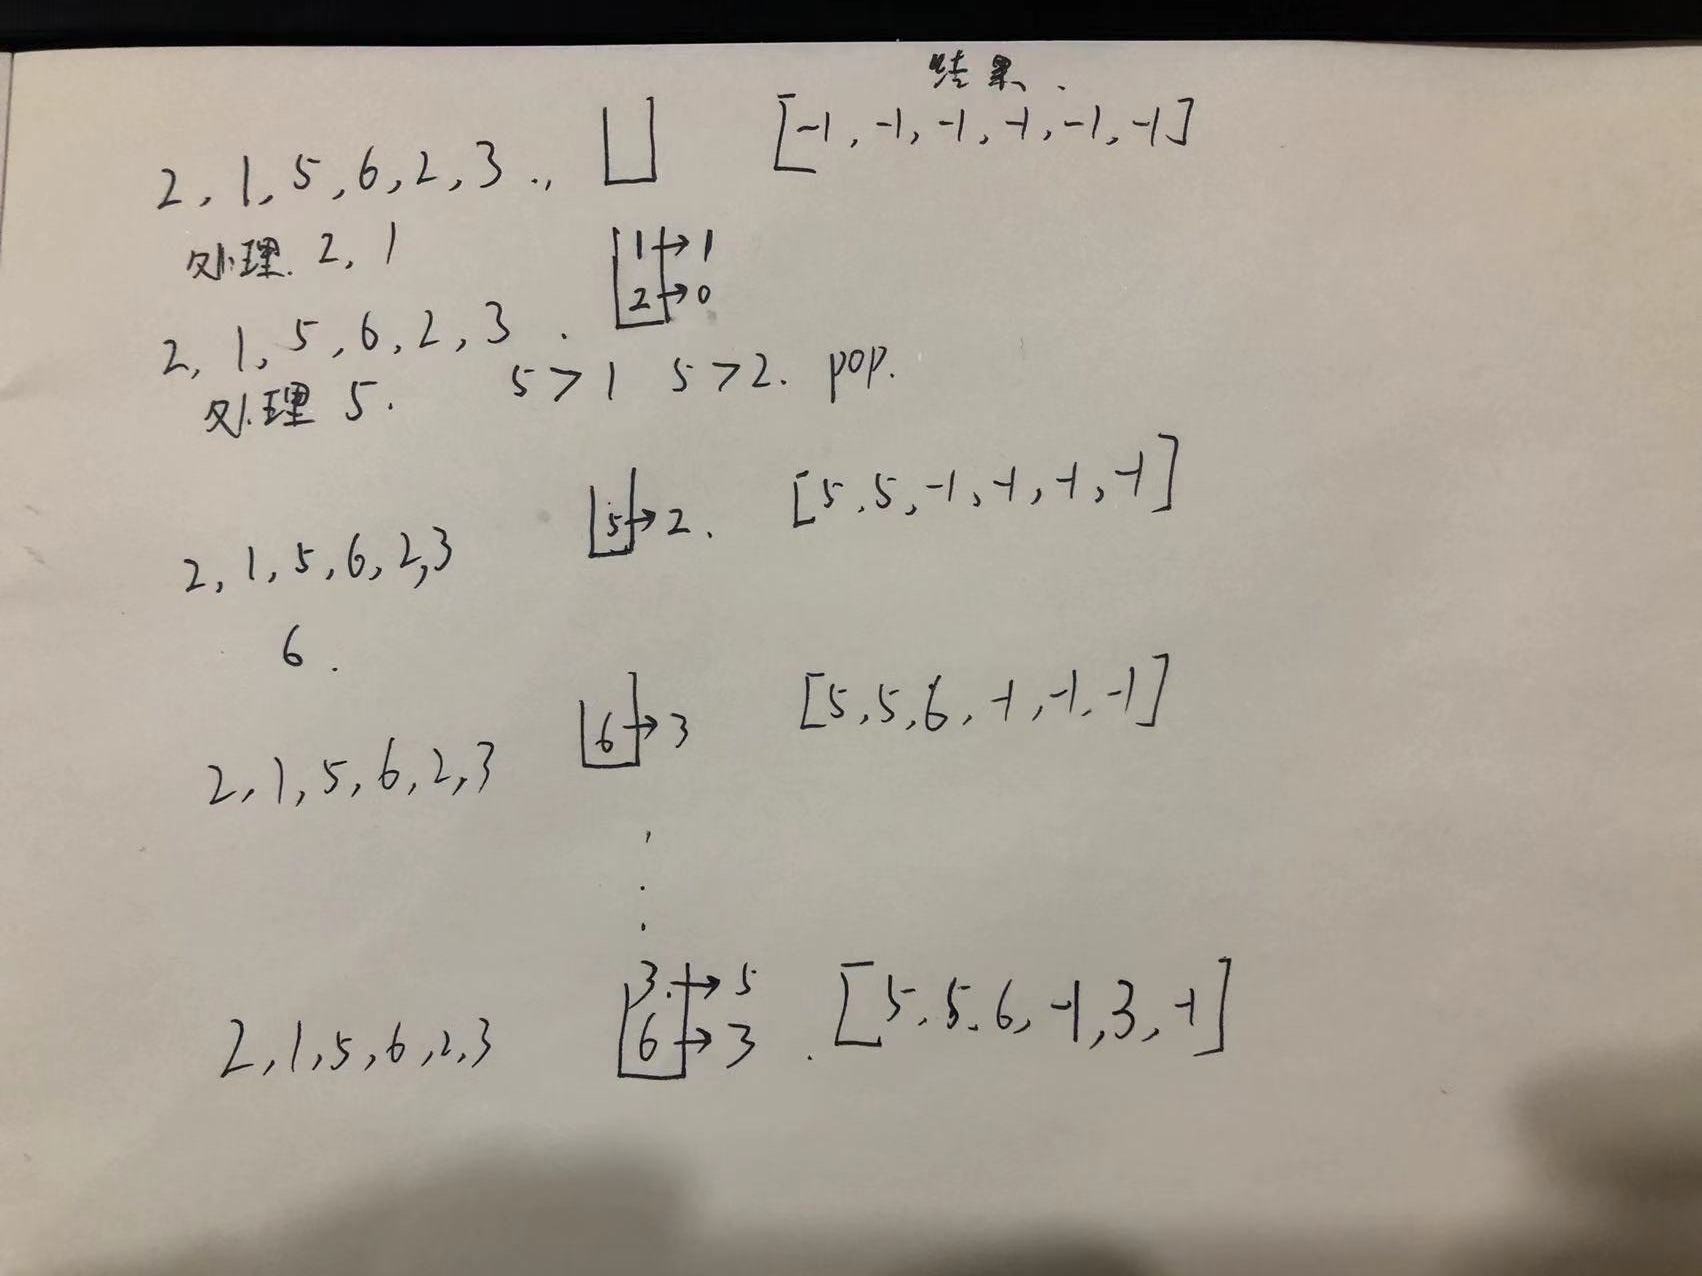 结果.
2, 1, 5, 6, 2, 3 ., [-1, -1, -1, -1, -1, -1]
处理. 2, 1 1→1
2→0
2, 1, 5, 6, 2, 3 .
处理 5. 5>1 5>2. pop.
5→2. [5, 5, -1, -1, -1, -1]
2, 1, 5, 6, 2, 3
6.
6→3 [5, 5, 6, -1, -1, -1]
2, 1, 5, 6, 2, 3
3.→5
2, 1, 5, 6, 2, 3 6→3 . [5, 5, 6, -1, 3, -1]